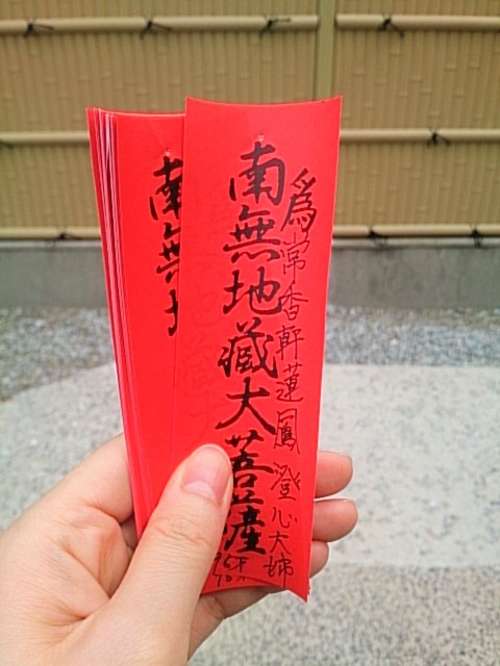 爲常香軒蓮鳳 澄心大姊
南無地藏大菩産
南無地